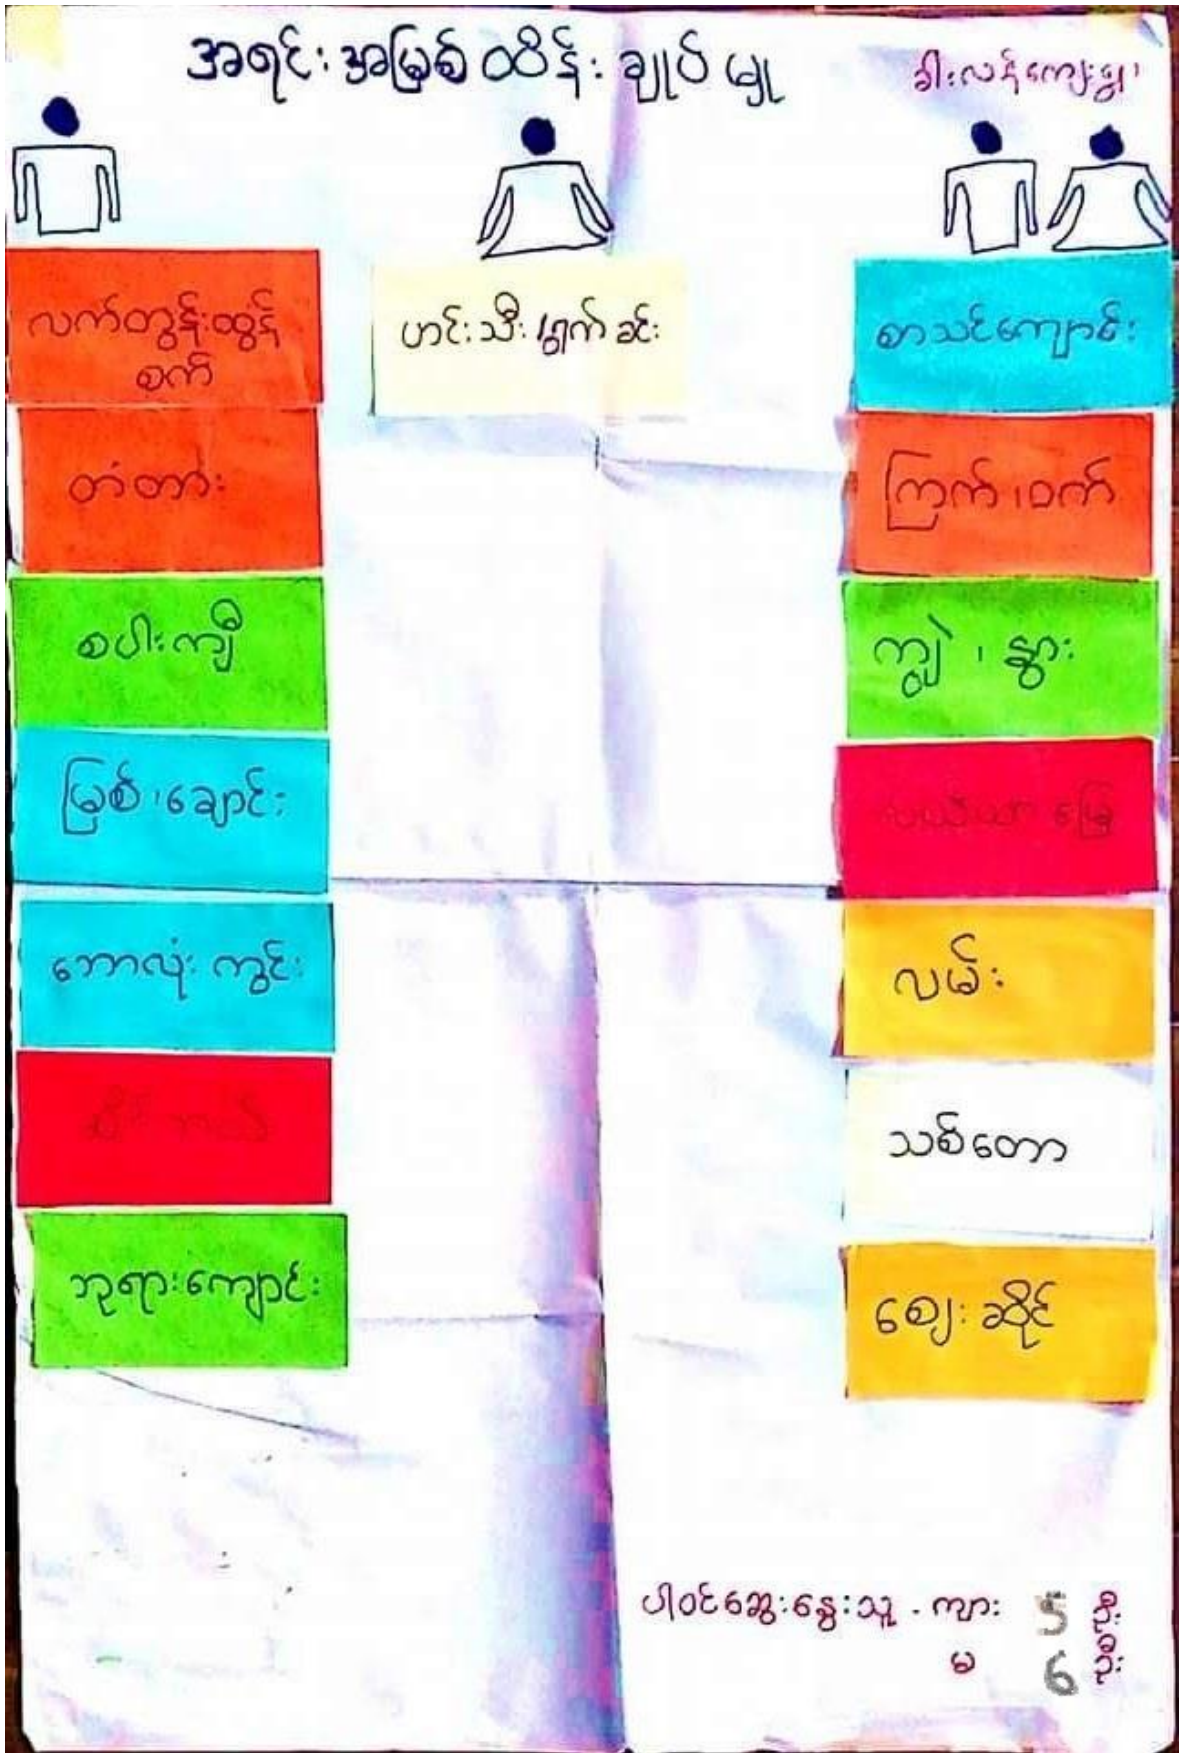 အရင်းအမြစ် ထိန်းချုပ်မှု
ခါးလန်ကျေးရွာ
လက်တွန်းထွန်
စက်
တံတား
စပါးကျီ
မြစ်၊ချောင်း
ဘောလုံးကွင်း
ဘုရားကျောင်း
ဟင်းသီး/ရွက်ခင်း
စာသင်ကျောင်း
ကြက်၊ဝက်
ကျွဲ၊နွား
လယ်ယာမြေ
လမ်း
သစ်တော
စျေးဆိုင်
ပါဝင်ဆွေးနွေးသူ - ကျား 5 ဦး
မ 6 ဦး